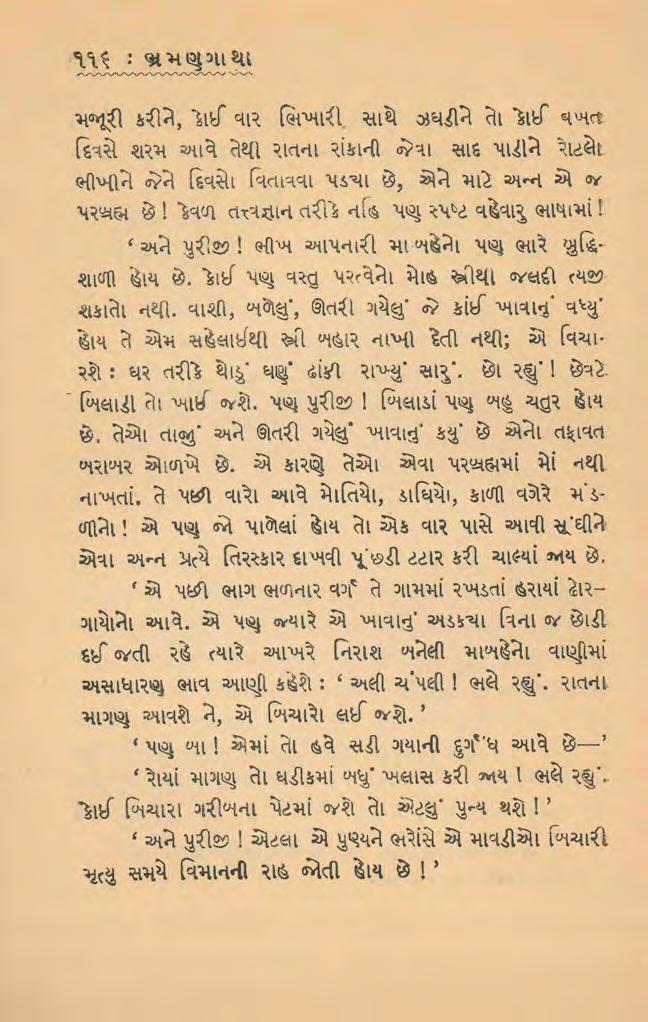 ૧૧૬ : ભ્રમણગાથા
મજૂરી કરીને, કોઈ વાર ભિખારી સાથે ઝઘડીને તો કોઈ વખત
દિવસે શરમ આવે તેથી રાતના રાંકાની જેવા સાદ પાડીને રોટલો
ભીખીને જેને દિવસો વિતાવવા પડચા છે, એને માટે અન્ન એ જ
પરબ્રહ્મ છે! કેવળ તત્ત્વજ્ઞાન તરીકે નહિ પણ સ્પષ્ટ વહેવારુ ભાષામાં!
‘ અને પુરીજી! ભીખ આપનારી મા બહેનો પણ ભારે બુદ્ધિ-
શાળી હોય છે. કોઈ પણ વસ્તુ પરત્વેનો મોહ સ્ત્રીથી જલદી ત્યજી
શકાતો નથી. વાશી, બળેલું, ઊતરી ગયેલું જે કાંઈ ખાવાનું વધ્યું
હોય તે એમ સહેલાઈથી સ્ત્રી બહાર નાખી દેતી નથી; એ વિચા-
રશે : ઘર તરીકે થોડું ઘણું ઢાંકી રાખ્યું સારું. છો રહ્યું! છેવટે
બિલાડી તો ખાઈ જશે. પણ પુરીજી! બિલાડાં પણ બહુ ચતુર હોય
છે. તેઓ તાજું અને ઊતરી ગયેલું ખાવાનું કયું છે એનો તફાવત
બરાબર ઓળખે છે. એ કારણે તેઓ એવા પરબ્રહ્મમાં મોં નથી
નાખતાં. તે પછી વારો આવે મોતિયો, ડાઘિયો, કાળી વગેરે મંડ-
ળીનો! એ પણ જો પાળેલાં હોય તો એક વાર પાસે આવી સૂંઘીને
એવા અન્ન પ્રત્યે તિરસ્કાર દાખવી પૂંછડી ટટાર કરી ચાલ્યાં જાય છે.
‘ એ પછી ભાગ ભળનાર વર્ગ તે ગામમાં રખડતાં હરાયાં ઢોર–
ગાયોનો આવે. એ પણ જ્યારે એ ખાવાનું અડકચા વિના જ છોડી
દઈ જતી રહે ત્યારે આખરે નિરાશ બનેલી માબહેનો વાણીમાં
અસાધારણ ભાવ આણી કહેશે : ‘ અલી ચંપલી! ભલે રહ્યું. રાતના
માગણ આવશે ને, એ બિચારો લઈ જશે.’
‘ પણ બા! એમાં તો હવે સડી ગયાની દુર્ગંધ આવે છે—’
‘ રોયાં માગણ તો ઘડીકમાં બધું ખલાસ કરી જાય! ભલે રહ્યું.
કોઈ બિચારા ગરીબના પેટમાં જશે તો એટલું પુન્ય થશે!’
‘ અને પુરીજી! એટલા એ પુણ્યને ભરોંસે એ માવડીઓ બિચારી
મૃત્યુ સમયે વિમાનની રાહ જોતી હોય છે!’